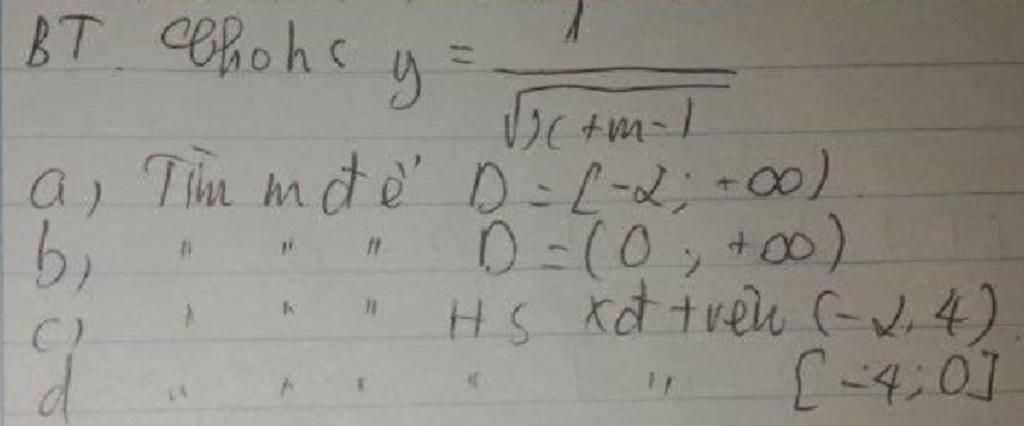 BT. Cho hs y = 1/√(x+m-1)
a, Tìm m để D = [-2; +∞)
b, " " " D = (0; +∞)
c, " " " HS xđ trên (-2,4)
d " " " " " [-4; 0]